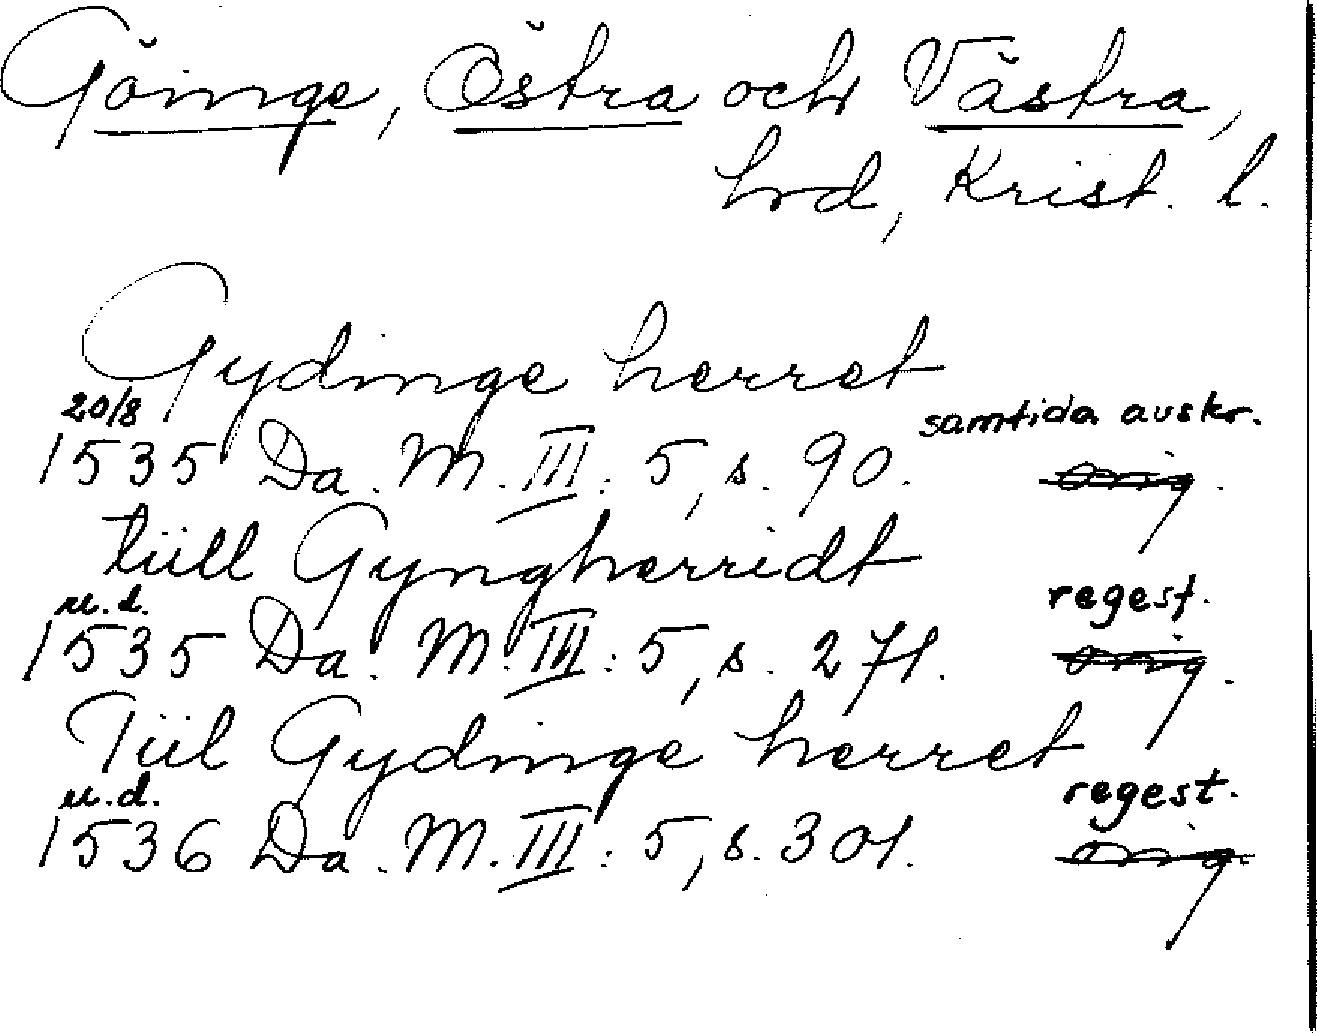 Göinge, Östra och Västra,
hrd, Krist. l.
Gydinge herret
20/8 samtida avskr.
1535 Da. M. III: 5, s. 90. orig.
tiill Gyngherridt
u.d. regest.
1535 Da. M. III: 5, s. 271. orig.
Tiil Gydinge herret
u.d. regest.
1536 Da. M. III: 5, s. 301. orig.